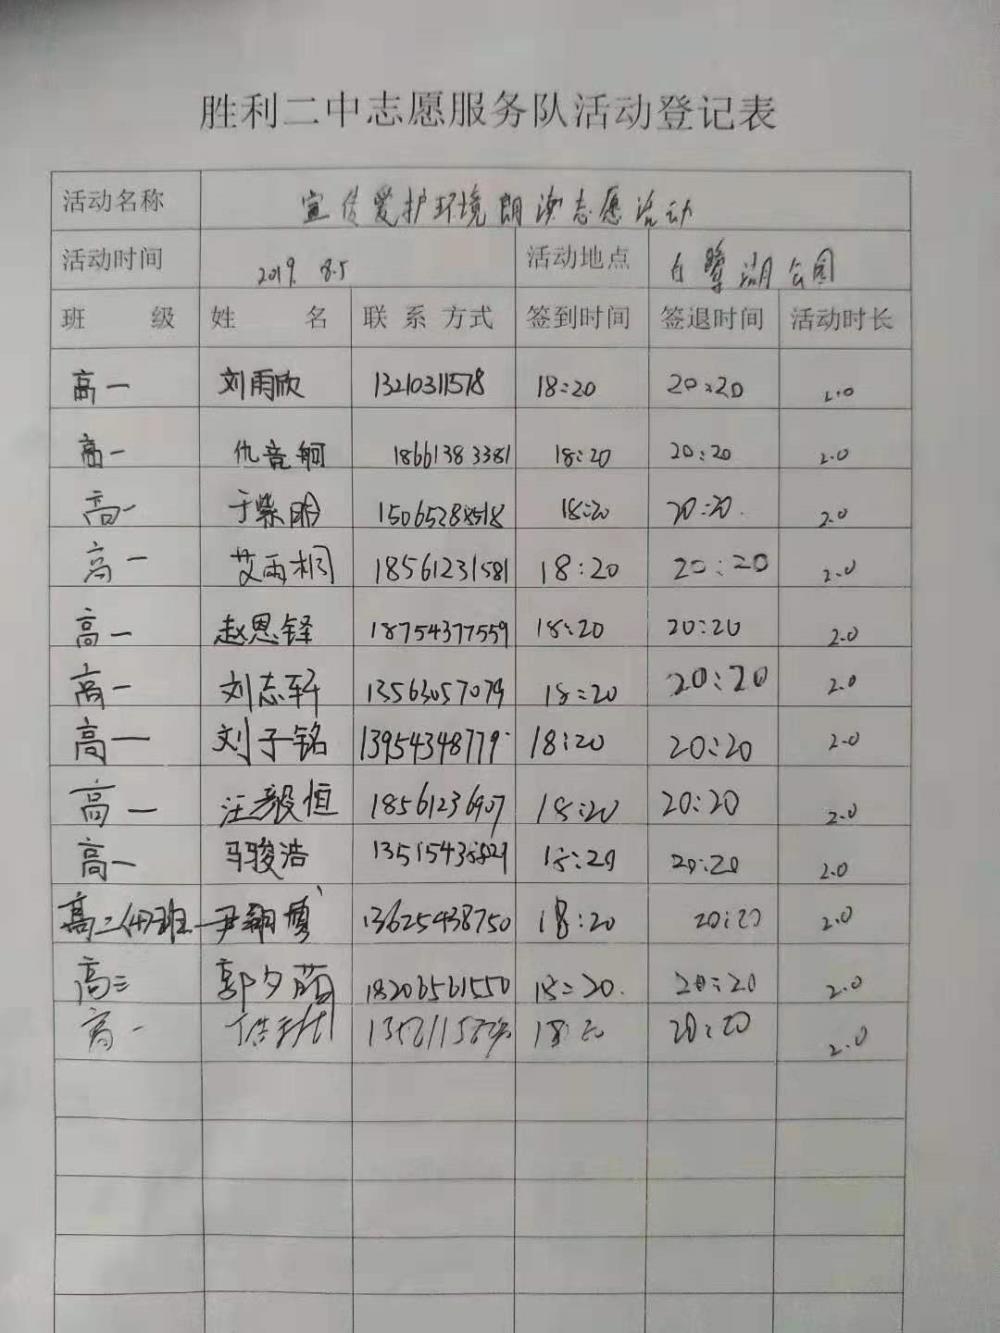 胜利二中志愿服务队活动登记表
活动名称 宣传爱护环境朗读志愿活动
活动时间 2019. 8.5 活动地点 白鹭湖公园
班 级 姓 名 联 系 方式 签到时间 签退时间 活动时长
高一 刘雨欣 13210311578 18:20 20:20 2.0
高一 仇音舸 18661383381 18:20 20:20 2.0
高一 于紫 18:20 20:20. 2.0
高一 艾雨桐 18561231581 18:20 20:20 2.0
高一 赵恩铎 18754377559 18:20 20:20 2.0
高一 刘志轩 13563057079 18:20 20:20 2.0
高一 刘子铭 13954348779 18:20 20:20 2.0
高一 汪毅恒 18561236907 18:20 20:20 2.0
高一 马骏浩 18:20 20:20 2.0
高二 班 尹翔 13625438750 18:20 20:20 2.0
高三 郭夕 18206561550 18:20. 20:20 2.0
高一 18:20 20:20 2.0